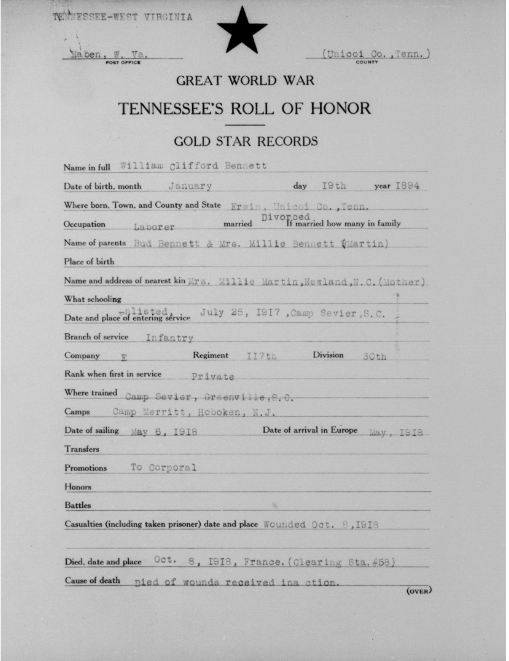 TENNESSEE-WEST VIRGINIA
Maben, W. Va. (Unicoi Co.,Tenn.)
POST OFFICE COUNTY
GREAT WORLD WAR
TENNESSEE'S ROLL OF HONOR
GOLD STAR RECORDS
Name in full William Clifford Bennett
Date of birth, month January day 19th year 1894
Where born, Town, and County and State Erwin, Unicoi Co.,Tenn.
Occupation Laborer married Divorced If married how many in family
Name of parents Bud Bennett & Mrs. Millie Bennett (Martin)
Place of birth
Name and address of nearest kin Mrs. Millie Martin,Newland,N.C.(Mother)
What schooling
Date and place of entering service Enlisted, July 25, 1917 ,Camp Sevier,S.C.
Branch of service Infantry
Company Regiment 117th Division 30th
Rank when first in service Private
Where trained Camp Sevier, Greenville,S.C.
Camps Camp Merritt, Hoboken, N.J.
Date of sailing May 6, 1918 Date of arrival in Europe May, 1918
Transfers
Promotions To Corporal
Honors
Battles
Casualties (including taken prisoner) date and place Wounded Oct. 8,1918
Died, date and place Oct. 8, 1918, France.(Clearing Sta.#58)
Cause of death Died of wounds received ina ction.
(OVER)